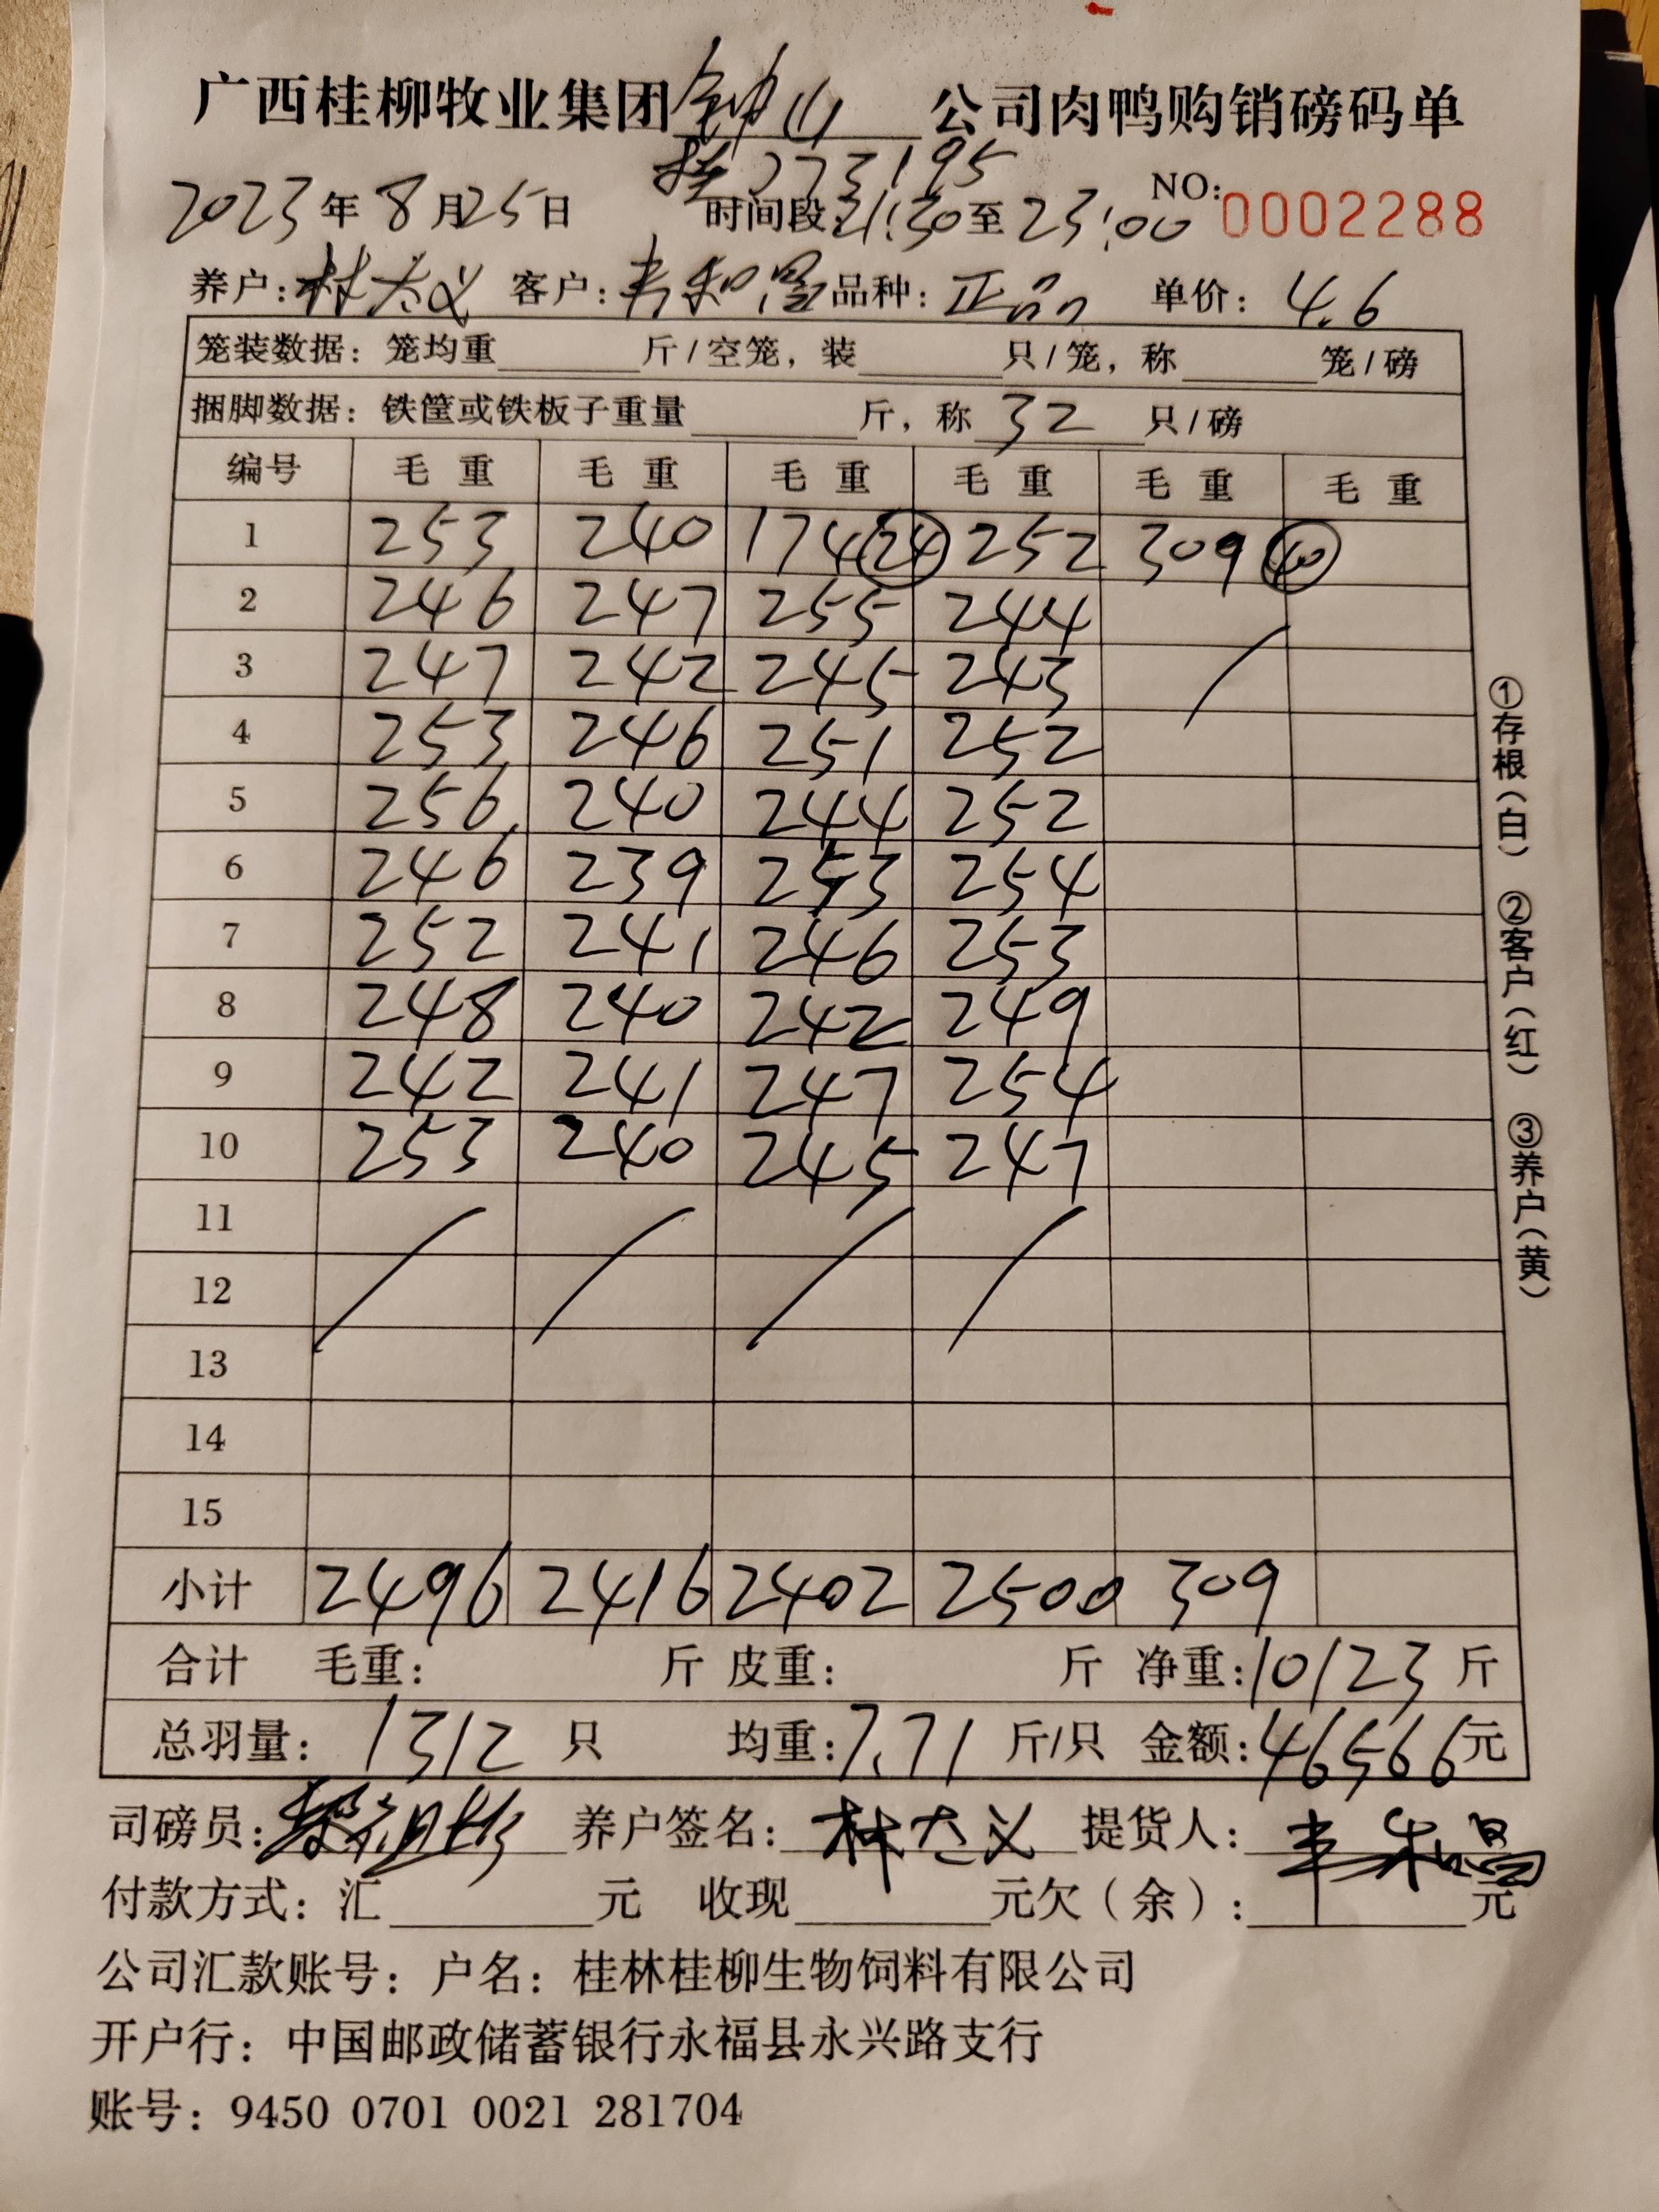 广西桂柳牧业集团 钟山 公司肉鸭购销磅码单
773195
2023年8月25日 时间段21:30至23:00 NO:0002288
养户:林太义 客户:韦和昌 品种:正品 单价:4.6
笼装数据:笼均重 斤/空笼,装 只/笼,称 笼/磅
捆脚数据:铁筐或铁板子重量 斤,称 32 只/磅
编号 毛重 毛重 毛重 毛重 毛重 毛重
1 253 240 174 24 252 309 40
2 246 247 255 244
3 247 242 245 243
4 253 246 251 252
5 256 240 244 252
6 246 239 253 254
7 252 241 246 253
8 248 240 242 249
9 242 241 247 254
10 253 240 245 247
11
12
13
14
15
小计 2496 2416 2402 2500 309
合计 毛重: 斤 皮重: 斤 净重:10123斤
总羽量:1312只 均重:7.71斤/只 金额:46566元
司磅员: 养户签名:林太义 提货人:韦和昌
付款方式:汇 元 收现 元欠(余): 元
公司汇款账号:户名:桂林桂柳生物饲料有限公司
开户行:中国邮政储蓄银行永福县永兴路支行
账号:9450 0701 0021 281704
①存根(白) ②客户(红) ③养户(黄)